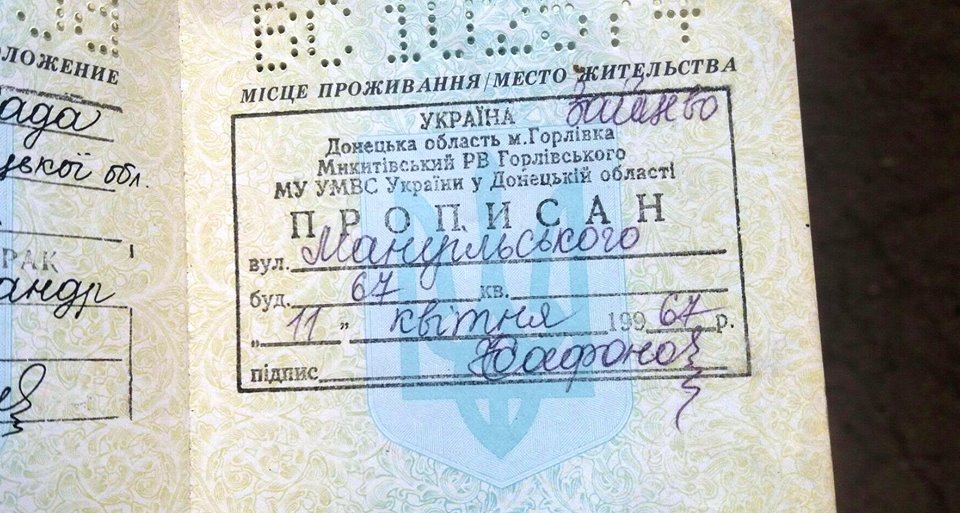 ОЛОЖЕНИЕ
ада
цької обл.
РАК
андр
МІСЦЕ ПРОЖИВАННЯ/МЕСТО ЖИТЕЛЬСТВА
УКРАЇНА
Донецька область м.Горлівка
Микитівський РВ Горлівського
МУ УМВС України у Донецькій області
ПРОПИСАН
вул. Мануільського
буд. 67 кв.
„ 11 " квітня 199 67 р.
підпис